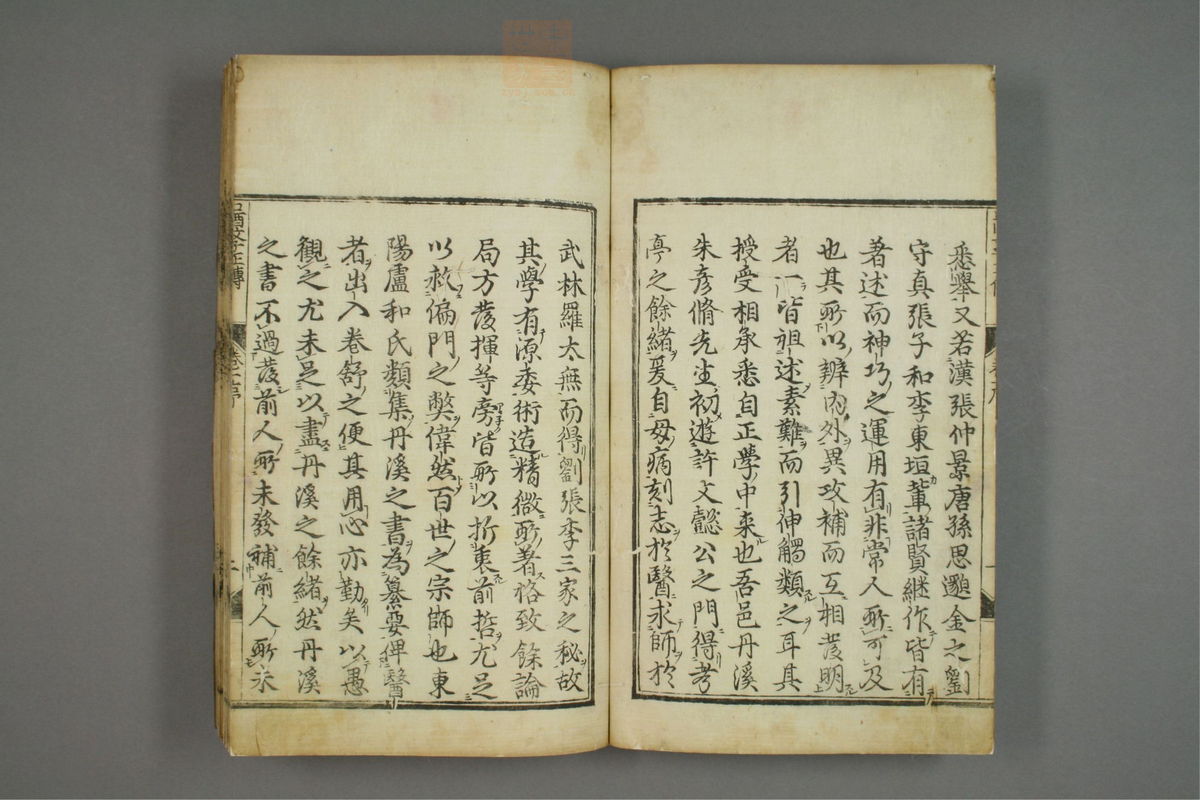 悉擧又若漢張仲景唐孫思邈金之劉
守真張子和李東垣輩諸賢継作皆有
著述而神巧之運用有非常人所可及
也其所以辨内外異攻補而互相發明
者一皆祖述素難而引伸觸類之耳其
授受相承悉自正學中来也吾邑丹溪
朱彦脩先生初遊許文懿公之門得考
亭之餘緒爰自母病刻志於醫求師於
武林羅太無而得劉張李三家之秘故
其學有源委術造精微所著格致餘論
局方發揮等旁皆所以折衷前哲尤足
以救偏門之獘偉然百世之宗師也東
陽盧和氏類集丹溪之書為纂要俾醫
者出入卷舒之便其用心亦勤矣以愚
觀之尤未足以盡丹溪之餘緒然丹溪
之書不過發前人所未發補前人所未
醫學正傳
卷之一序